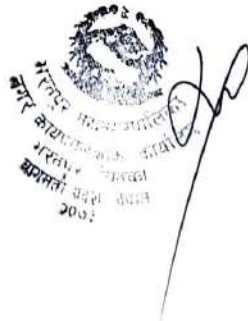 भरतपुर महानगरपालिका
नगर कार्यपालिकाको कार्यालय
भरतपुर चितवन
बागमती प्रदेश नेपाल